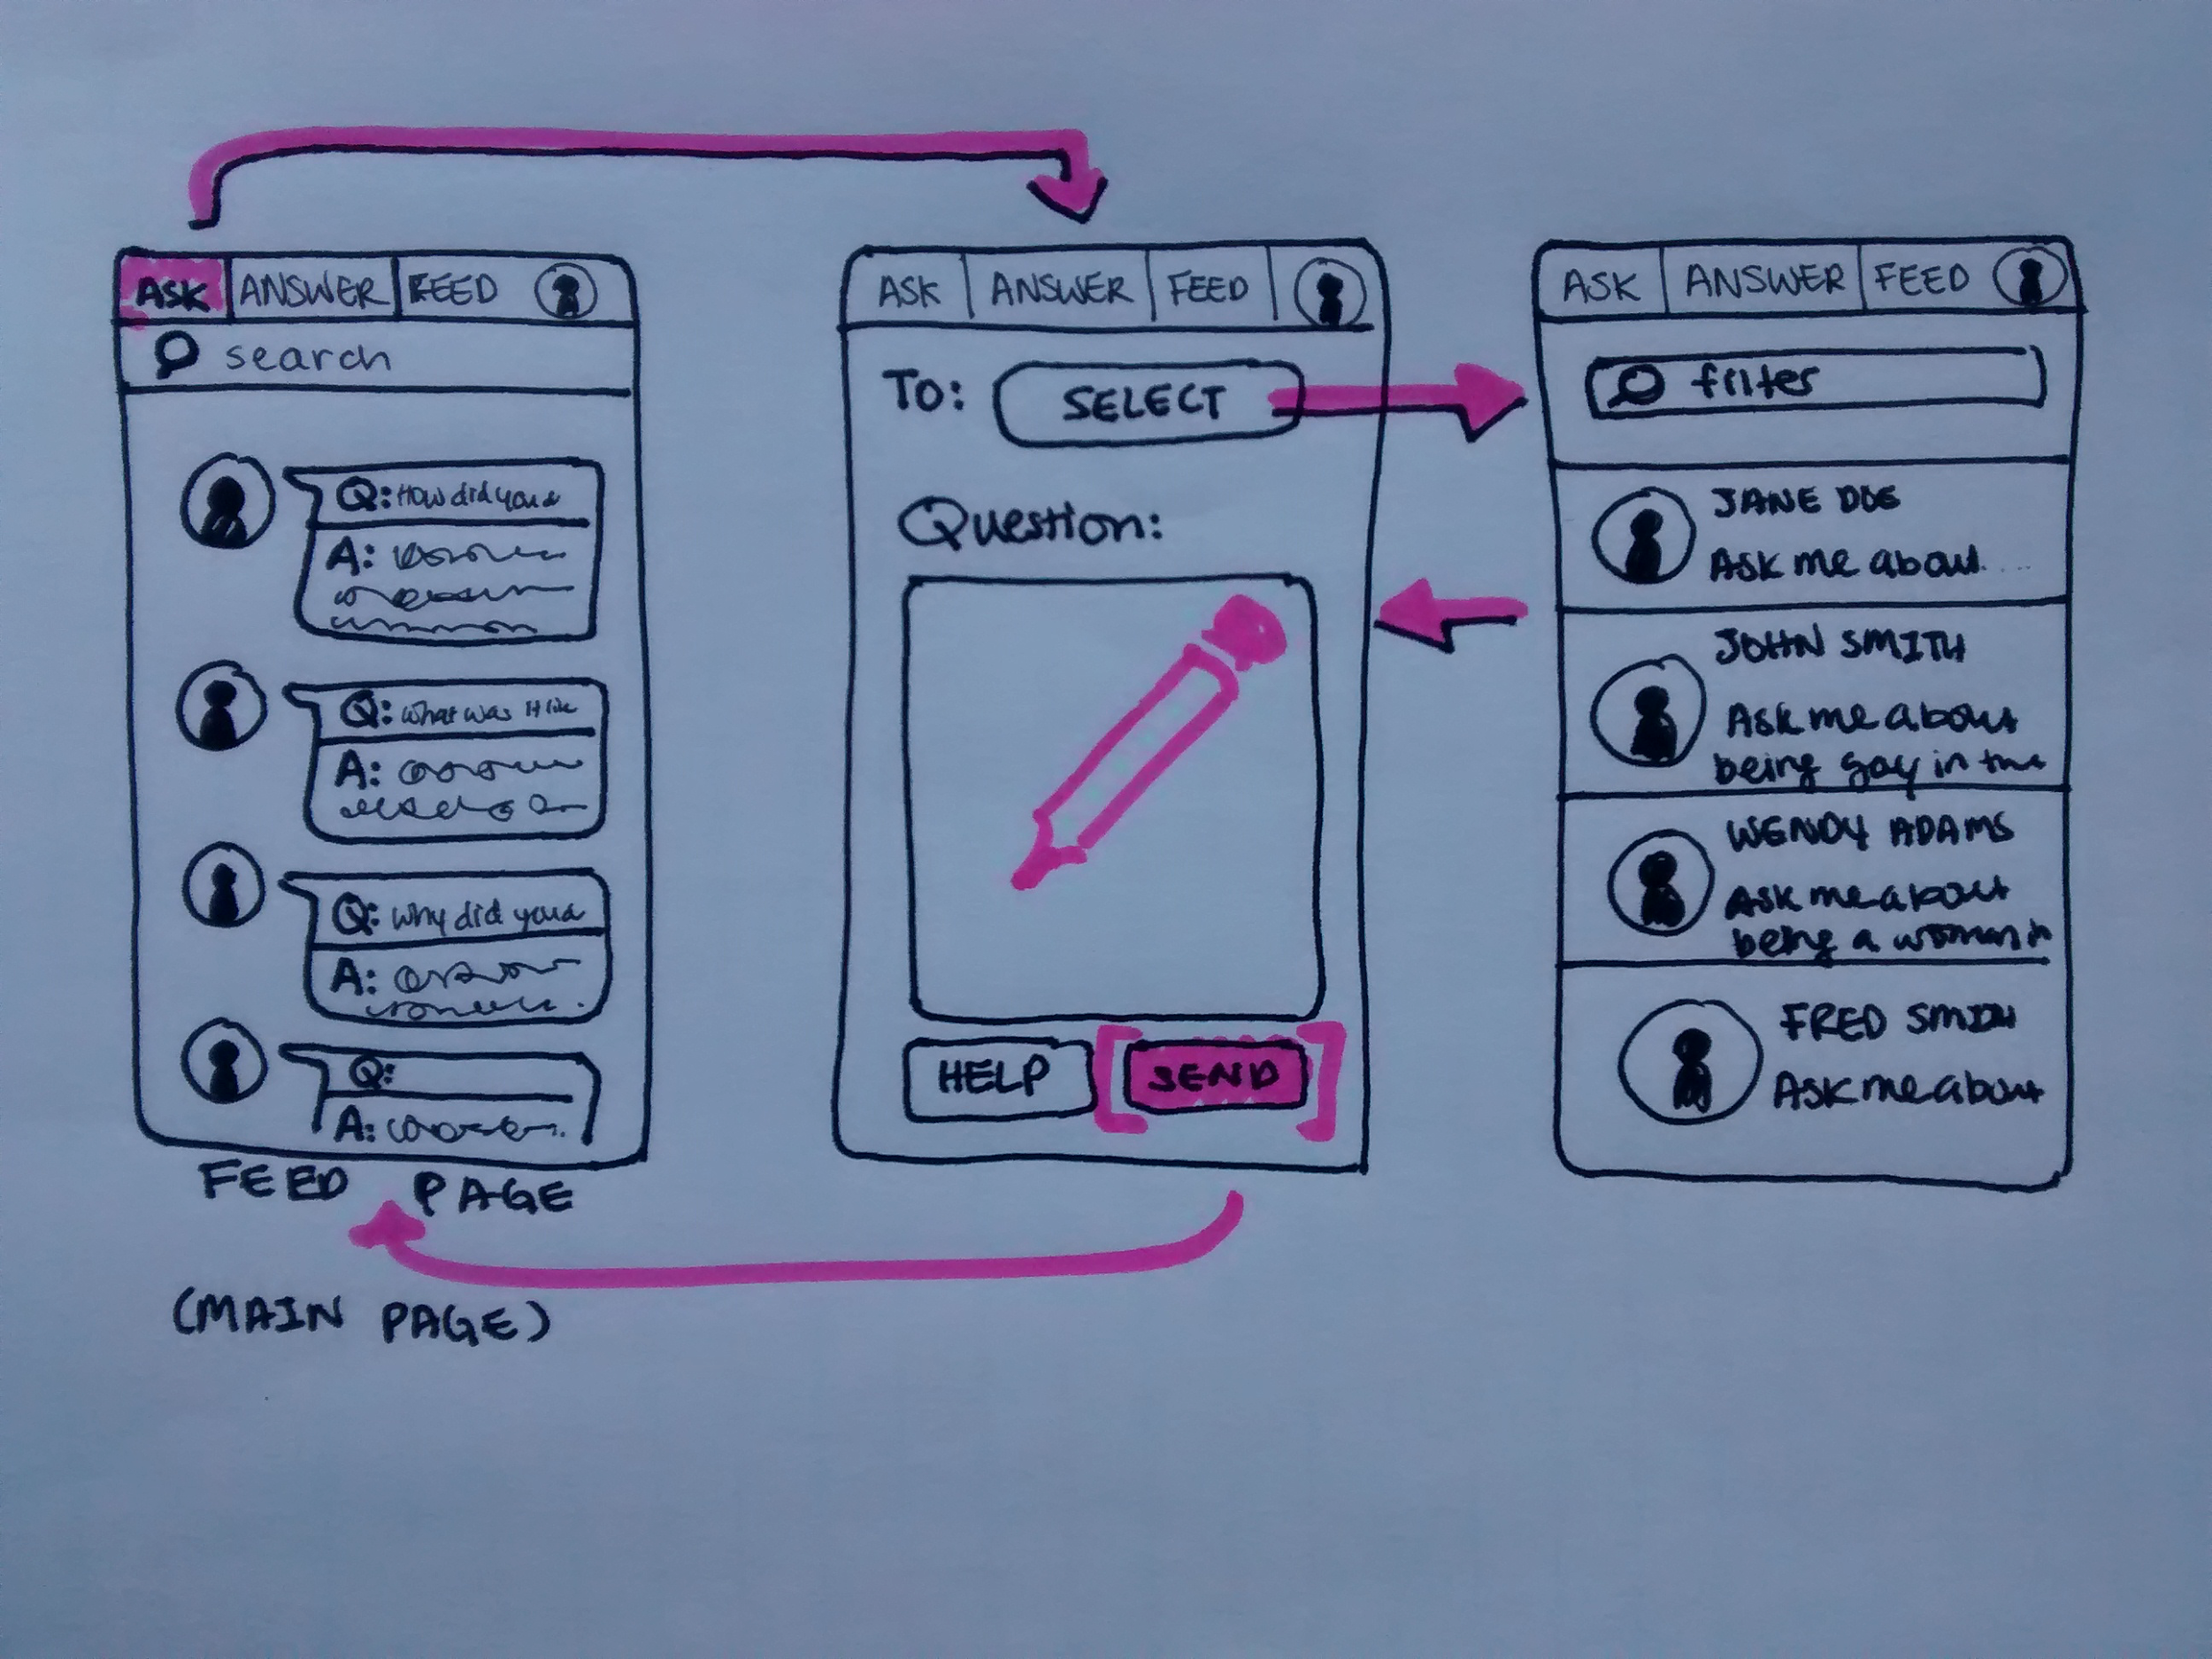 ASK ANSWER FEED
search
Q: How did you
A:
Q: What was it
A:
Q: Why did you
A:
Q:
A:
FEED PAGE
(MAIN PAGE)
ASK ANSWER FEED
TO: SELECT
Question:
HELP SEND
ASK ANSWER FEED
filter
JANE DOE
Ask me about....
JOHN SMITH
Ask me about
being gay in the
WENDY ADAMS
Ask me about
being a woman in
FRED SMITH
Ask me about